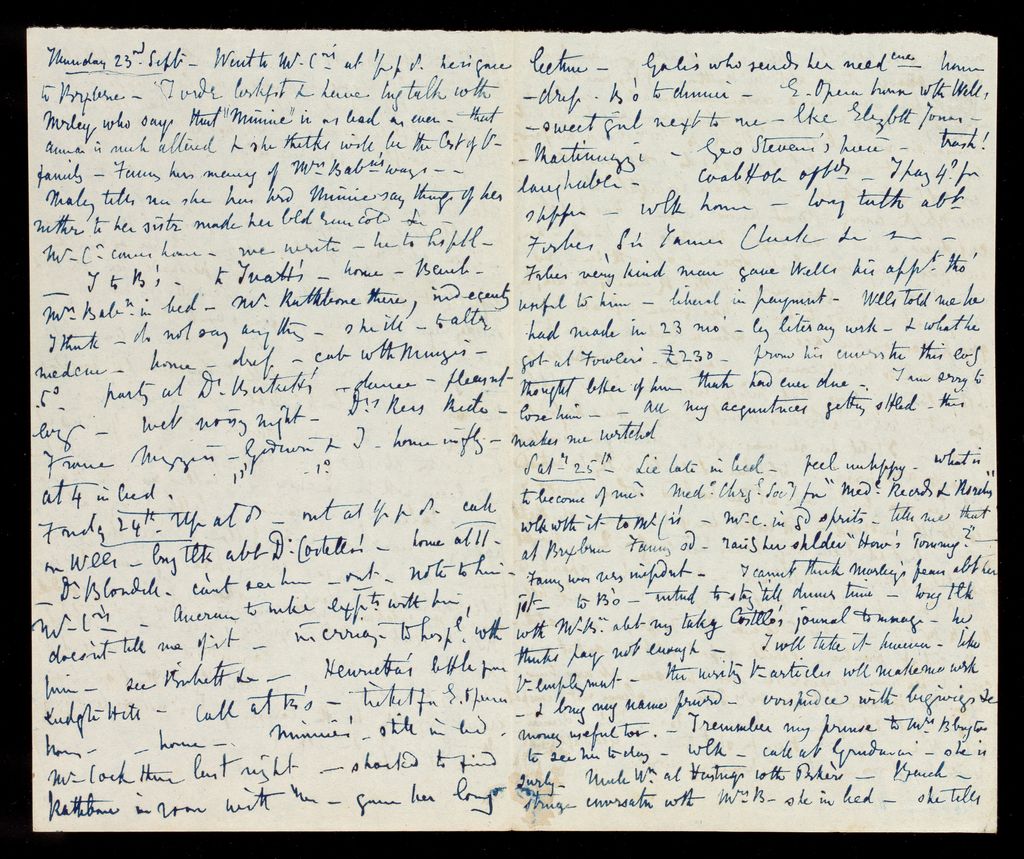 Thursday 23rd Septr - Went to Mr C's at ½ p 8. he is gone
to Brixtone - I order breakfast & have long talk with
Morley who says that "Minnie" is as bad as ever - that
Anna is much altered & she thinks will be the best of ye
family - Fanny has many of Mrs Bab's ways -
Morley tells me she has heard Minnie say things of her
mother to her sister made her blood run cold &
Mr C. comes home - we write - he to hosptl -
I to B's. - to Truatt's - home - Beard -
Mrs Babn in bed - Mr Rathbone there, indecently
I think - do not say anything - she ill - to alter
medcine - home - dress - cab with Muggis -
5o party at Dr Birkett's - dance - pleasant
evg - wet noisy night - Drs Rees
Frome Muggis - Godwin & I - home in fly -
at 4 in bed.
Friday 24th. Up at 8 - out at ½ p 8. call
on Wells - long tlk abt Dr Costello's - home at 11 -
Dr Blondell - can't see him - out - note to him -
Mr C's - to make expts with him,
doesn't tell me of it - in carriage to hospl with
him - see Birkett & - Henrietta's letter from
Ludgte Hill - call at B's - ticket for E. Opera
house - home - Minnie's - still in bed -
Mr Cock there last night - shocked to find
Rathbone in room with "her - gave her long
lecture - Gale's who sends her medcine - home
- dress - B's to dinner - E. Opera house with Wells,
- sweet girl next to me - like Elizbth Jones -
- Martinuzzi - Geo Steven's piece - trash!
laughable - Coal Hole aftds - I pay 4s for
supper - wlk home - long talk abt
Forbes Sir James Clark &
Forbes very kind man gave Wells his appt tho'
useful to him - liberal in payment - Wells told me he
had made in 23 mos - by literary work - & what he
got at Fowler's £230 - from his conversatn this evg
thought better of him than had ever done - I am sorry to
lose him - - All my acquntnces getting settled - this
makes me wretched
Satdy 25th - Lie late in bed - feel unhappy - what is
to become of me? Medcl Chirgl Socy for "Medcl Records & Researches"
wlk with it to Mr C's - Mr C. in gd spirits - tells me that
at Brixtone Fanny sd - raising her shoulder "How's Tommy?"
Fanny was very impudent - I cannot think Morley's fears abt her
just - to B's - invited to stay till dinner time - long tlk
with Mr B. abt my taking Costello's journal to manage - he
thinks pay not enough - I will take it however - like
ye employment - the writing ye articles will make me work
- & bring my name forwd - correspdce with bigwigs &c
money useful too. - I remember my promse to Mrs Blington
to see her to day - wlk - call at Goodman's - she is
surly - Uncle Wm at Hastings with Parker - Beard -
strange conversatn with Mrs B - she in bed - she tells